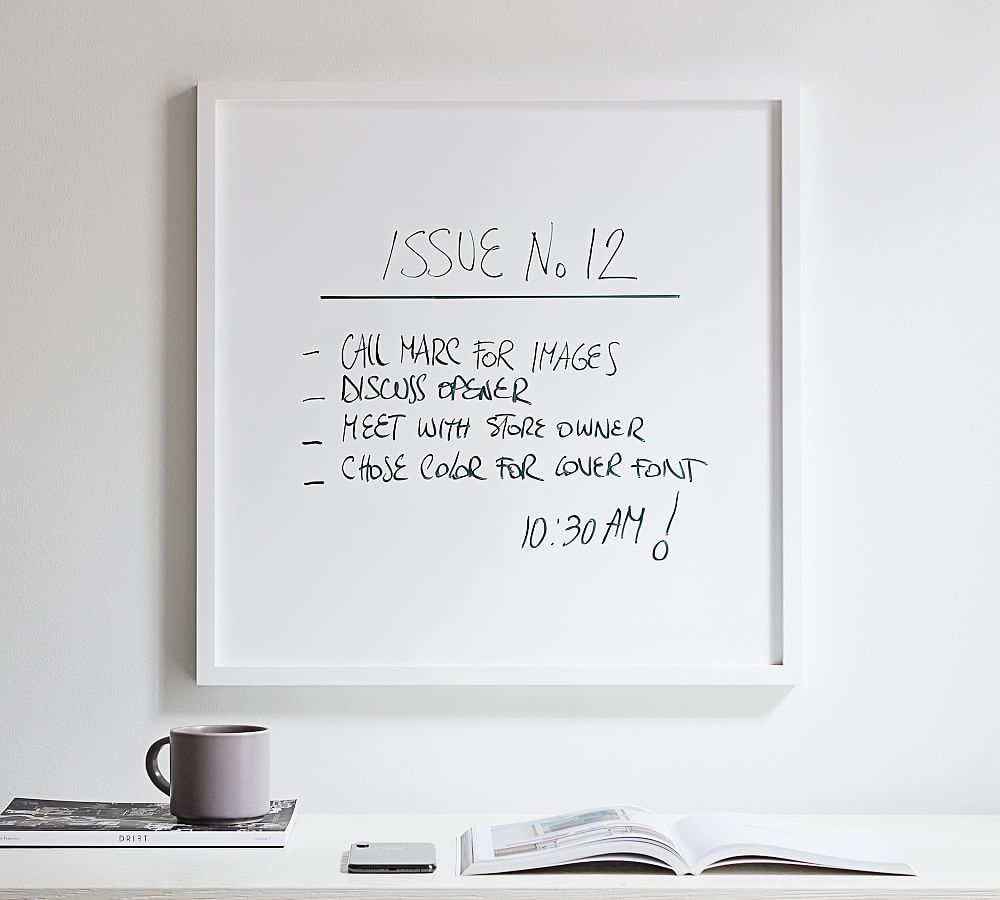 ISSUE No 12
– CALL MARC FOR IMAGES
– DISCUSS OPENER
– MEET WITH STORE OWNER
– CHOSE COLOR FOR COVER FONT
10:30 AM!
DRIFT